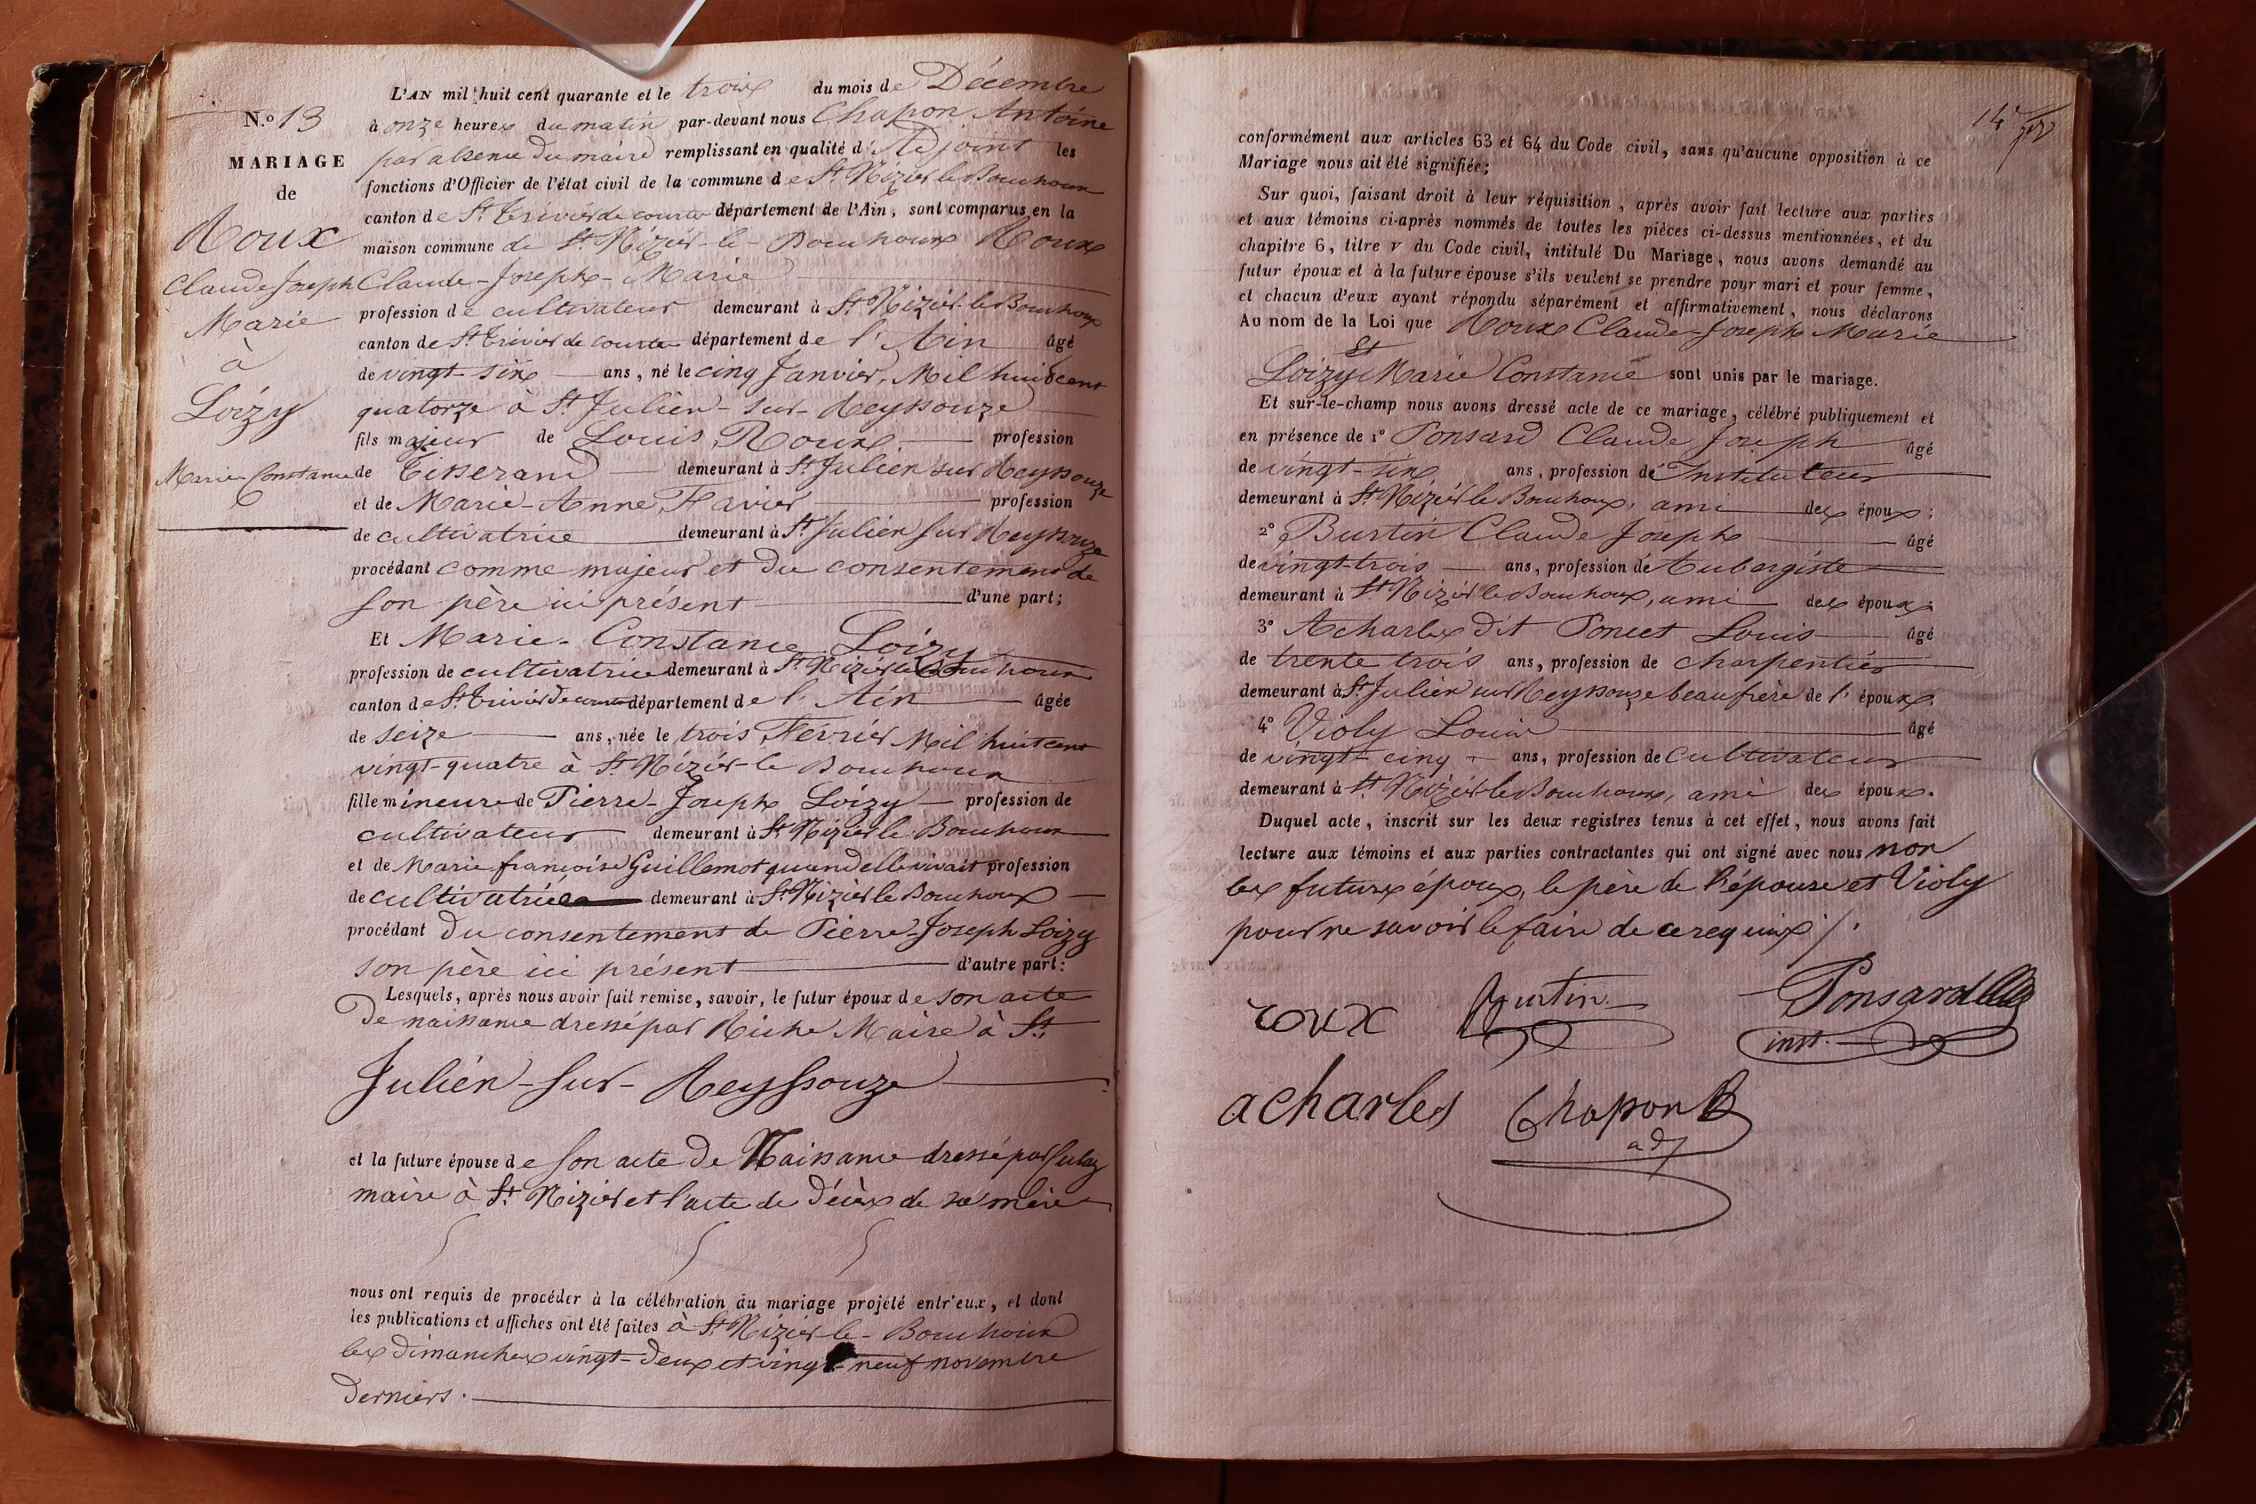 L'AN mil huit cent quarante et le trois du mois de Décembre
N.o 13
à onze heures du matin par-devant nous Chapon Antoine
MARIAGE
par absence du maire remplissant en qualité d'Adjoint les
de
fonctions d'Officier de l'état civil de la commune de St. Nizier le Bouchoux
canton de St. Trivier de courtes département de l'Ain, sont comparus en la
Roux
maison commune de St. Nizier-le-Bouchoux Roux
Claude Joseph
Claude-Joseph-Marie
Marie
profession de cultivateur demeurant à St. Nizier-le Bouchoux
à
canton de St. Trivier de courtes département de l'Ain âgé
de vingt-six ans, né le cinq Janvier, Mil huit cent
Loizy
quatorze à St. Julien-sur-Reyssouze
fils majeur de Louis Roux profession
Marie-Constance
de Tisserand demeurant à St. Julien sur Reyssouze
et de Marie-Anne Favier profession
de cultivatrice demeurant à St. Julien sur Reyssouze
procédant comme majeur et du consentement de
son père ici présent d'une part;
Et Marie-Constance Loizy
profession de cultivatrice demeurant à St. Nizier le Bouchoux
canton de St. Trivier de courtes département de l'Ain âgée
de seize ans, née le trois Février Mil huit cent
vingt-quatre à St. Nizier-le Bouchoux
fille mineure de Pierre-Joseph Loizy profession de
cultivateur demeurant à St. Nizier le Bouchoux
et de Marie françoise Guillemot quand elle vivait profession
de cultivatrice demeurant à St. Nizier le Bouchoux
procédant du consentement de Pierre-Joseph Loizy
son père ici présent d'autre part:
Lesquels, après nous avoir fait remise, savoir, le futur époux de son acte
de naissance dressé par Riche Maire à St.
Julien-sur-Reyssouze
et la future épouse de son acte de Naissance dressé par
maire à St. Nizier et l'acte de décès de sa mère
nous ont requis de procéder à la célébration du mariage projeté entr'eux, et dont
les publications et affiches ont été faites à St. Nizier-le-Bouchoux
les dimanches vingt-deux et vingt-neuf novembre
derniers.
14
conformément aux articles 63 et 64 du Code civil, sans qu'aucune opposition à ce
Mariage nous ait été signifiée;
Sur quoi, faisant droit à leur réquisition, après avoir fait lecture aux parties
et aux témoins ci-après nommés de toutes les pièces ci-dessus mentionnées, et du
chapitre 6, titre v du Code civil, intitulé Du Mariage, nous avons demandé au
futur époux et à la future épouse s'ils veulent se prendre pour mari et pour femme,
et chacun d'eux ayant répondu séparément et affirmativement, nous déclarons
Au nom de la Loi que Roux Claude-Joseph Marie
Et
Loizy Marie Constance sont unis par le mariage.
Et sur-le-champ nous avons dressé acte de ce mariage, célébré publiquement et
en présence de 1o Ponsard Claude Joseph âgé
de vingt-six ans, profession de Instituteur
demeurant à St. Nizier le Bouchoux, ami des époux;
2o Burtin Claude Joseph âgé
de vingt-trois ans, profession de Aubergiste
demeurant à St. Nizier le Bouchoux, ami des époux;
3o Acharles dit Poncet Louis âgé
de trente trois ans, profession de charpentier
demeurant à St. Julien sur Reyssouze beaufrère de l'époux;
4o Violy Louis âgé
de vingt-cinq ans, profession de Cultivateur
demeurant à St. Nizier le Bouchoux, ami des époux.
Duquel acte, inscrit sur les deux registres tenus à cet effet, nous avons fait
lecture aux témoins et aux parties contractantes qui ont signé avec nous non
les futurs époux, le père de l'épouse et Violy
pour ne savoir le faire de ce requis /.
roux Burtin Ponsard
inst.
acharles Chapon
adj